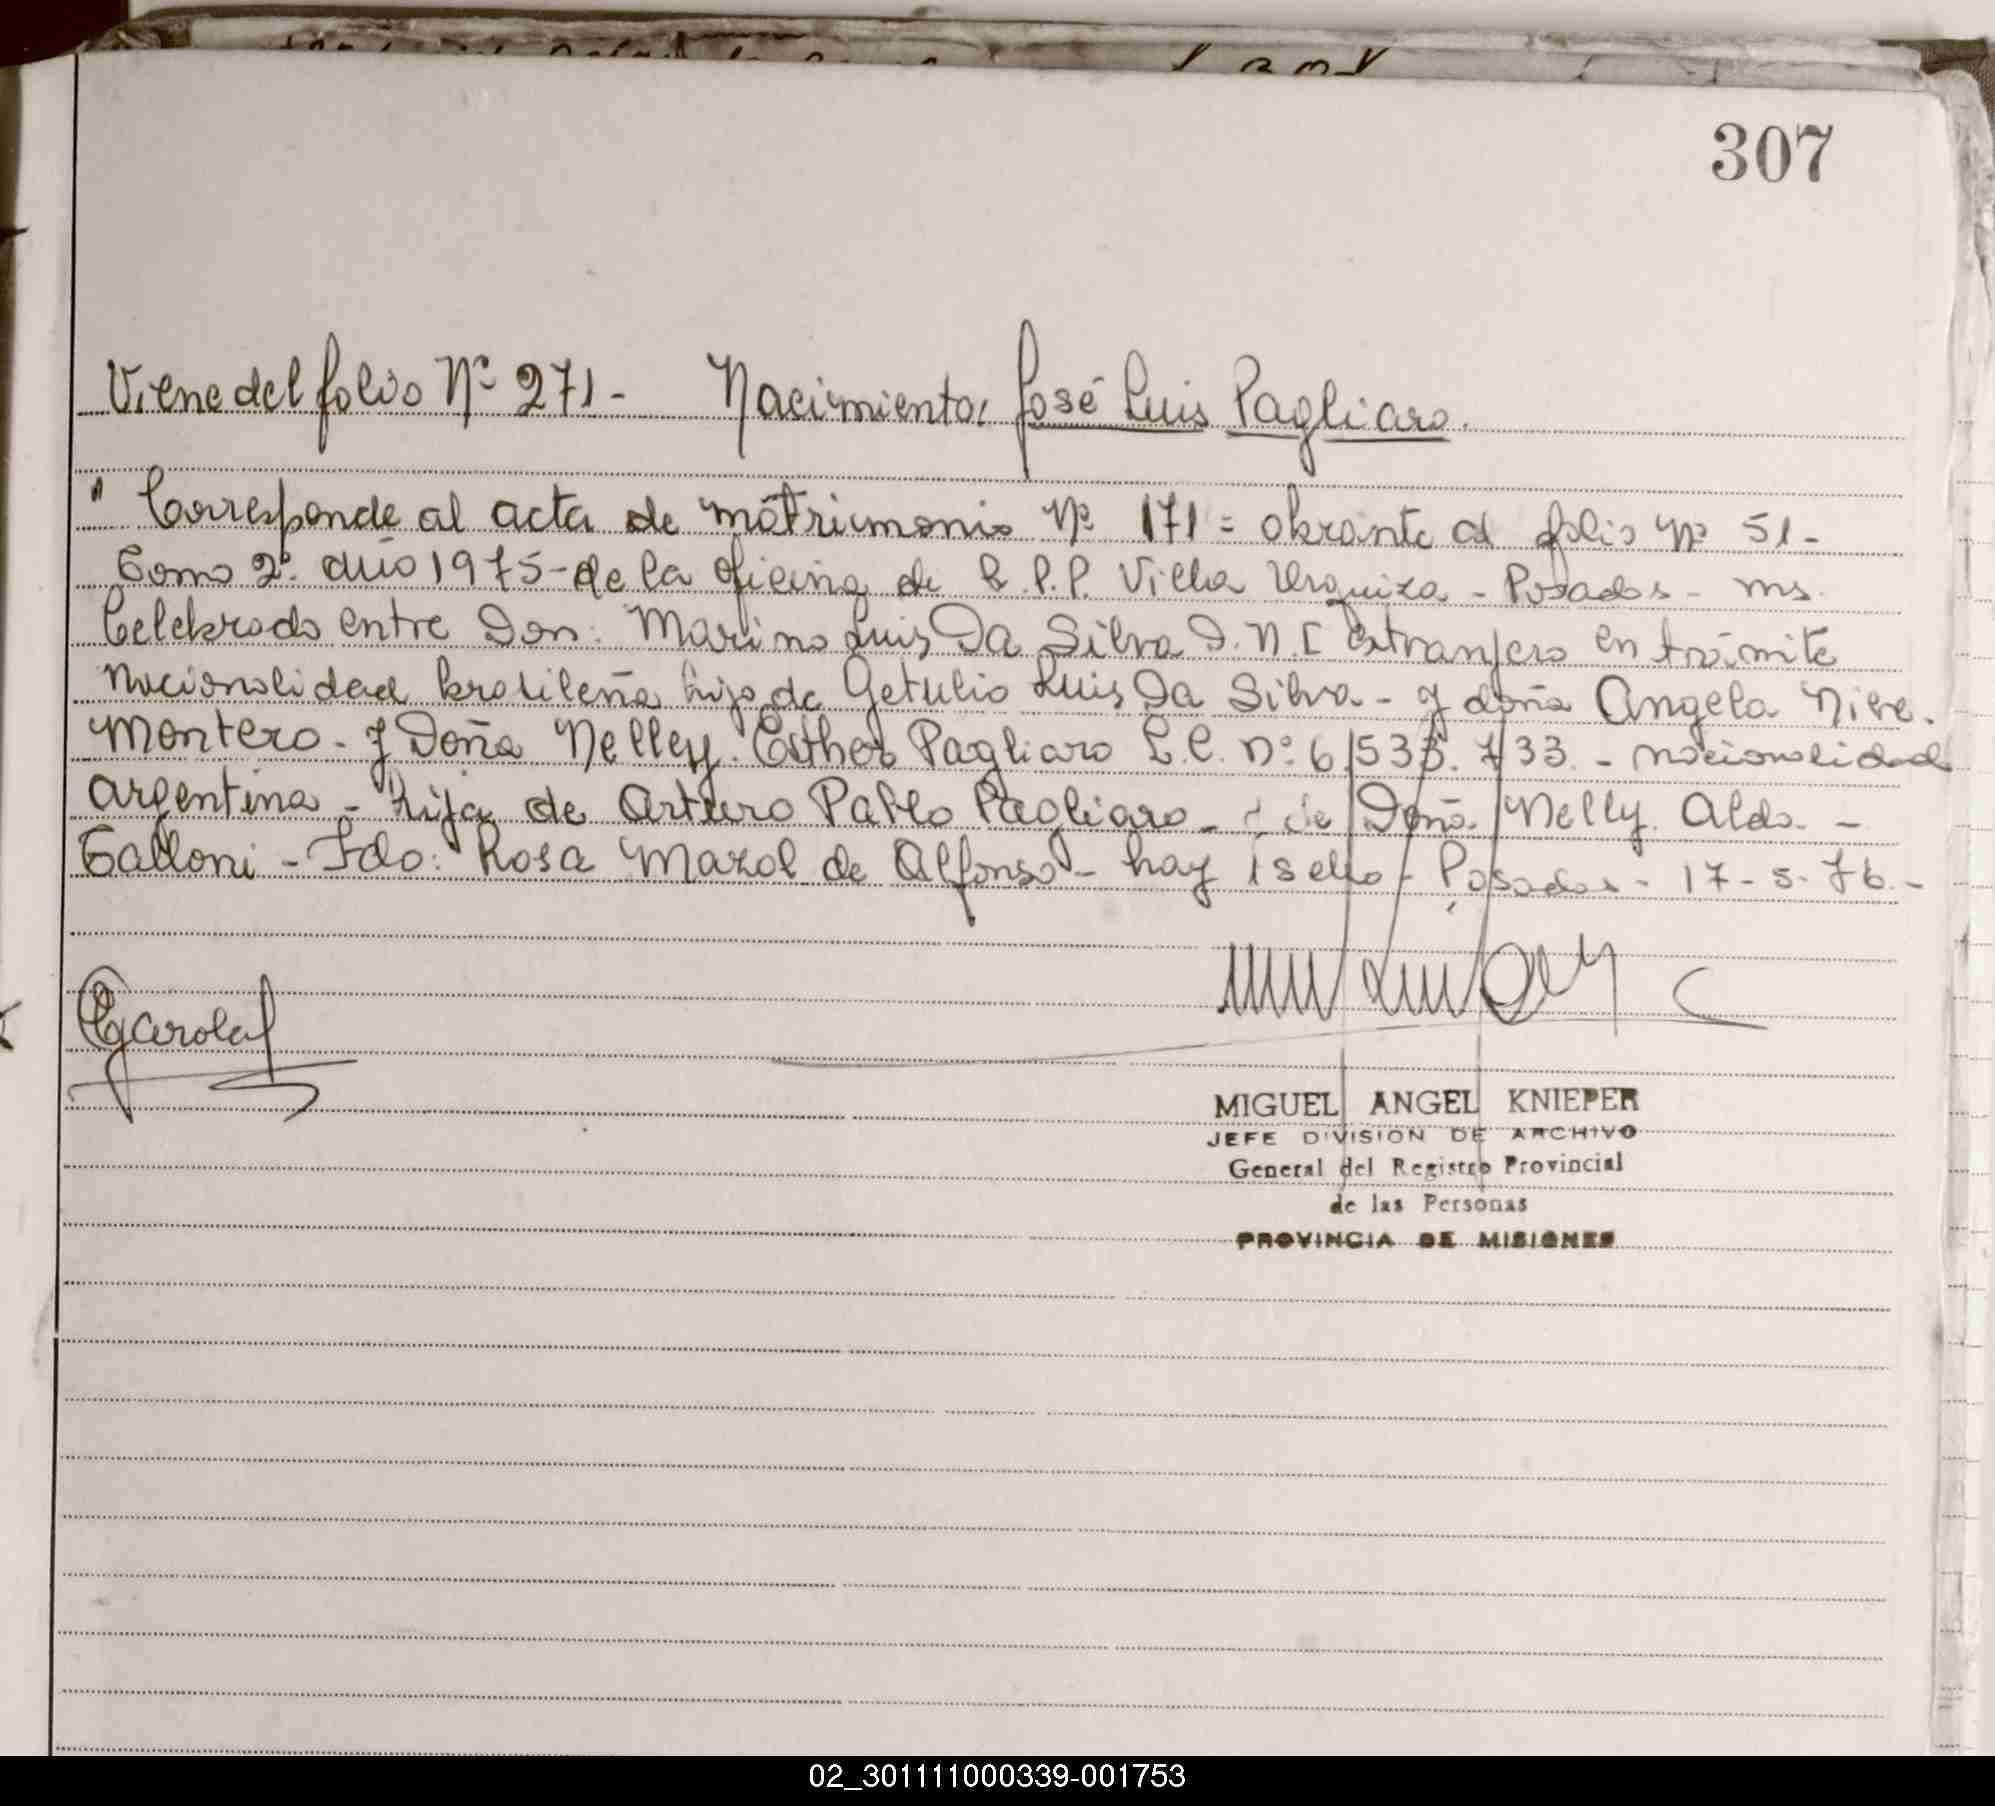 307
Viene del folio Nº 271 - Nacimiento: José Luis Pagliaro.
" Corresponde al acta de matrimonio Nº 171 = obrante al folio Nº 51 -
Tomo 2º. año 1975 - de la oficina de R.P.P. Villa Urquiza - Posadas - Ms.
Celebrado entre Don: Marino Luis Da Silva D.N.I extranjero en trámite
nacionalidad brasileña hijo de Getulio Luis Da Silva - y doña Angela Nive.
Montero - y Doña Nelley. Esther Pagliaro L.C. Nº 6.533.733. - nacionalidad
argentina - hija de Arturo Pablo Pagliaro - y de Doña Nelly. Alda. -
Galloni - Fdo: Rosa Mazol de Alfonso - hay 1 sello - Posadas - 17 - 5 - 76. -
MIGUEL ANGEL KNIEPER
JEFE DIVISION DE ARCHIVO
General del Registro Provincial
de las Personas
PROVINCIA DE MISIONES
02_301111000339-001753